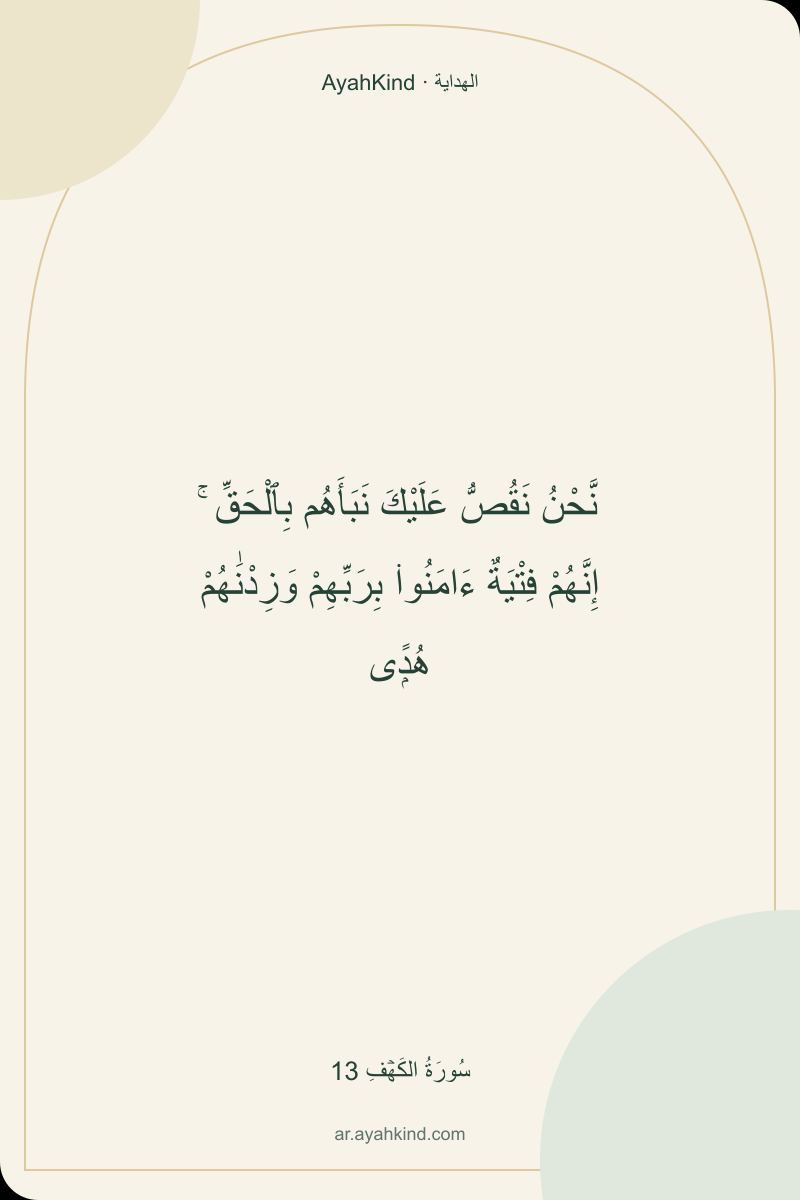 AyahKind · الهداية
نَّحْنُ نَقُصُّ عَلَيْكَ نَبَأَهُم بِٱلْحَقِّ ۚ
إِنَّهُمْ فِتْيَةٌ ءَامَنُوا۟ بِرَبِّهِمْ وَزِدْنَٰهُمْ
هُدًۭى
سُورَةُ الكَهۡفِ 13
ar.ayahkind.com